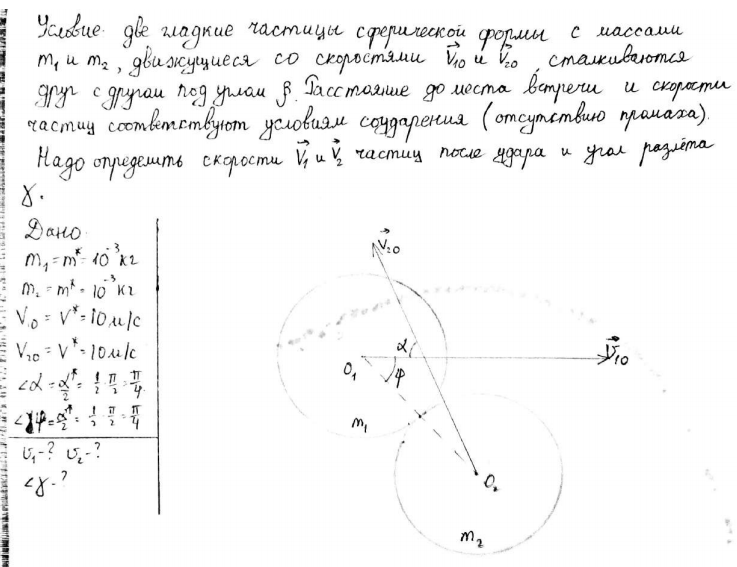 Условие: две гладкие частицы сферической формы с массами
m₁ и m₂, движущиеся со скоростями V⃗₁₀ и V⃗₂₀, сталкиваются
друг с другом под углом β. Расстояние до места встречи и скорости
частиц соответствуют условиям соударения (отсутствию промаха).
Надо определить скорости V⃗₁ и V⃗₂ частиц после удара и угол разлёта
γ.
Дано
m₁ = m* = 10⁻³ кг
m₂ = m* = 10⁻³ кг
V₁₀ = V* = 10 м/с
V₂₀ = V* = 10 м/с
∠α = α*/2 = 1/2 · π/2 = π/4
∠φ = α*/2 = 1/2 · π/2 = π/4
υ₁ - ? υ₂ - ?
∠γ - ?
V⃗₂₀
α
O₁
φ
V⃗₁₀
m₁
O₂
m₂